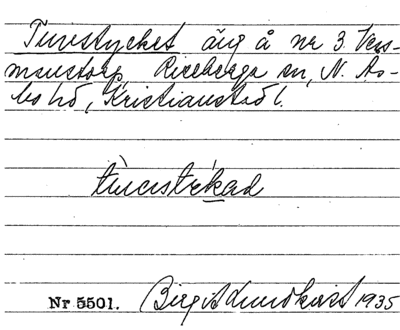 Tuvestycket äng å nr 3 Väs-
manstorp, Riseberga sn, N. Ås-
bo hd, Kristianstads l.
Nr 5501. Birgit Lundkvist 1935